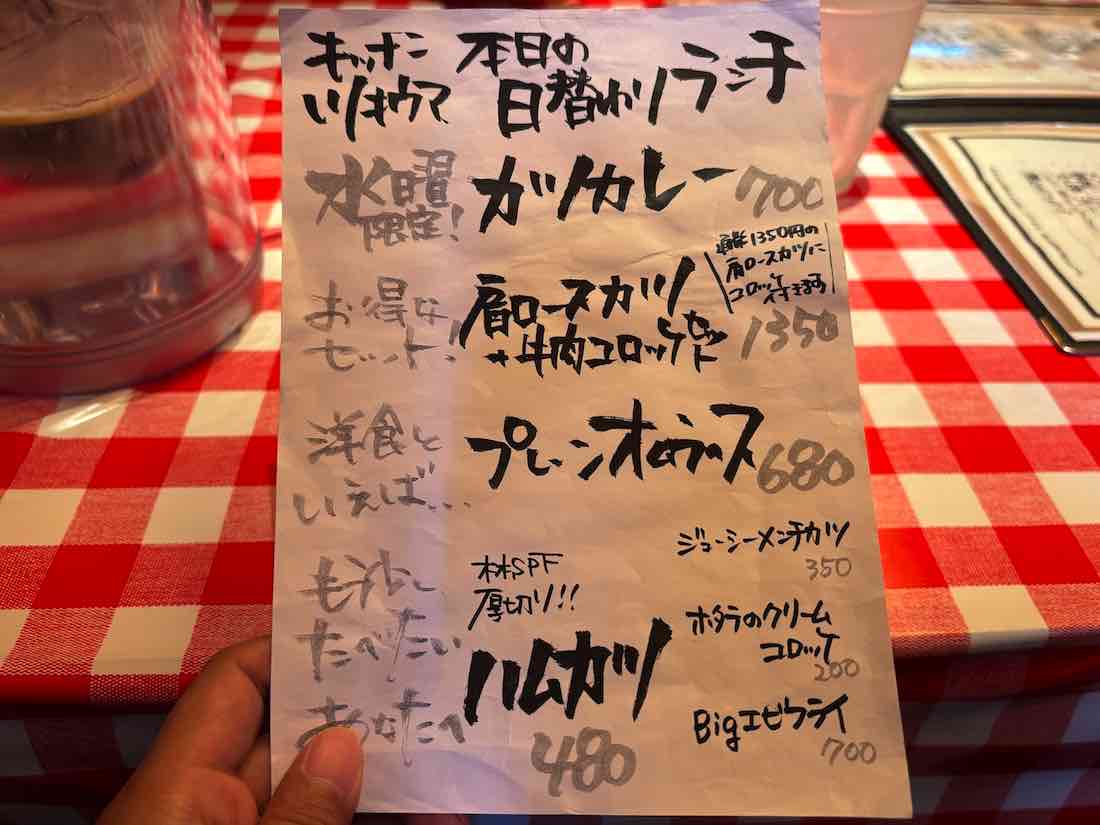 キッチン
いリョウマ
本日の
日替わりランチ
水曜
限定!
カツカレー
700
お得な
セット!
肩ロースカツ
+牛肉コロッケセット
通常1350円の
肩ロースカツに
コロッケ
付きます
1350
洋食と
いえば...
プレーンオムライス
680
もう少し
たべたい
あなたへ
林SPF
厚切り!!
ハムカツ
480
ジューシーメンチカツ
350
ホタテのクリーム
コロッケ
200
Bigエビフライ
700